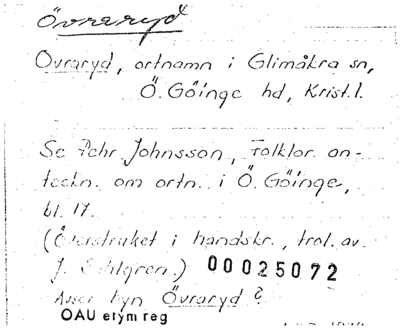 Övraryd
Övraryd, ortnamn i Glimåkra sn,
Ö. Göinge hd, Krist. l.
Se Pehr Johnsson, Folklor. an-
teckn. om ortn. i Ö. Göinge,
bl. 17.
(Överstruket i handskr., trol. av
J. Sahlgren.) 00025072
Avser byn Övraryd?
OAU etym reg